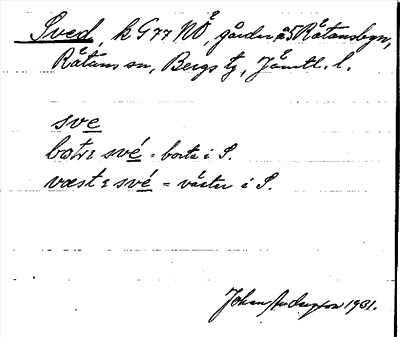 Sved, k G77 NÖ, gården å5 Råtansbyn,
Råtans sn, Bergs tg, Jämtl. l.
sve
bort i své = borta i S.
væst i své = väster i S.
Johan Andersson 1931.